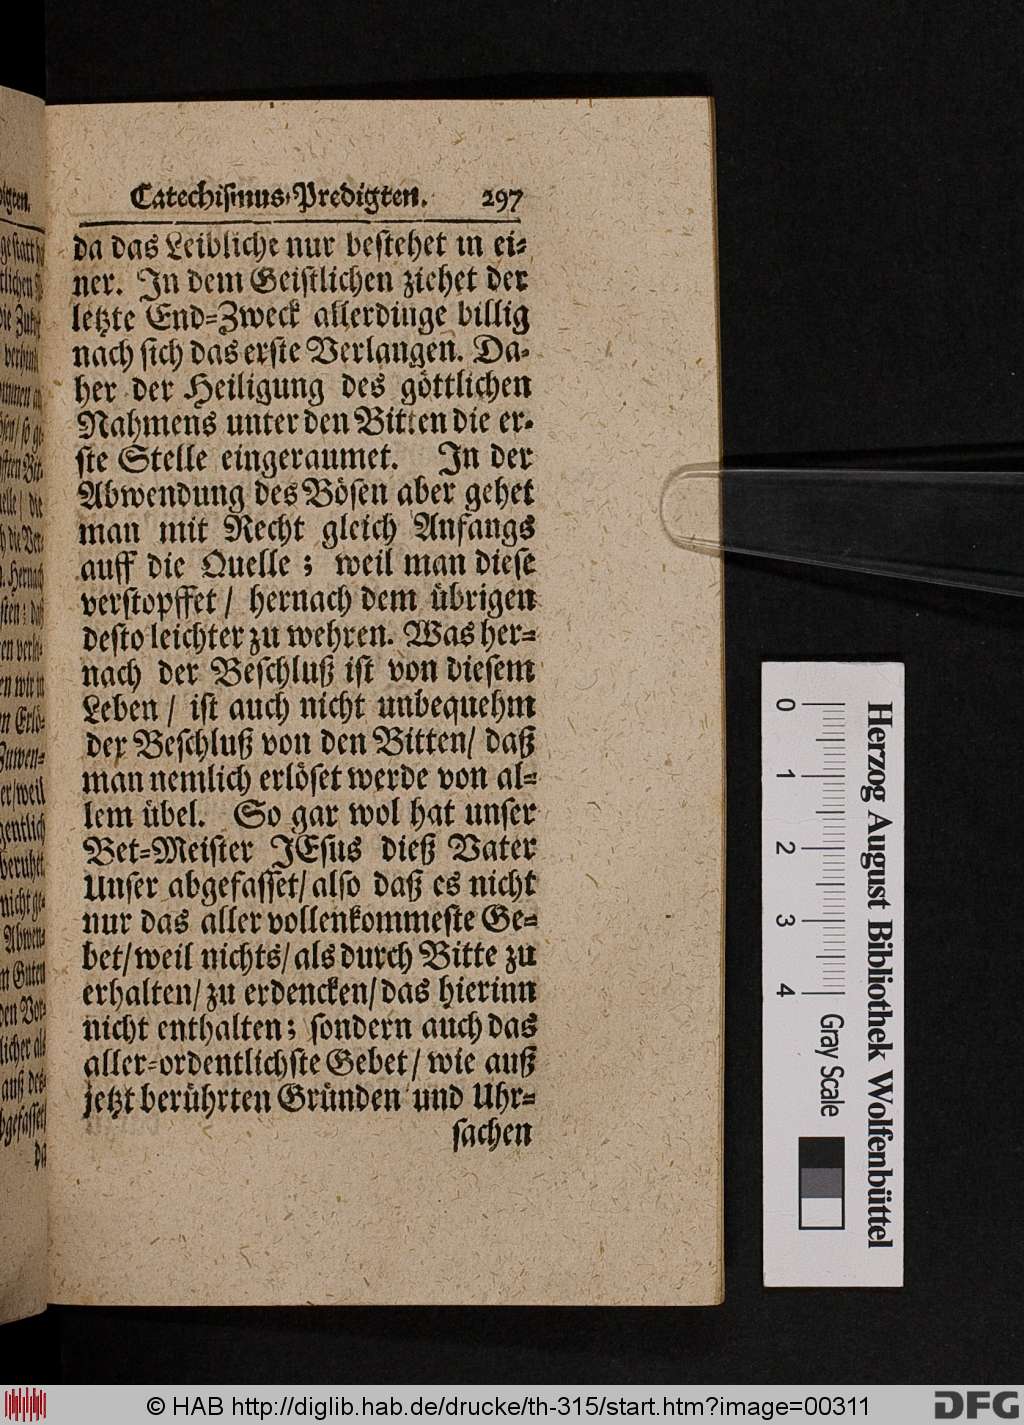 Catechismus-Predigten. 297
da das Leibliche nur bestehet in ei-
ner. In dem Geistlichen ziehet der
letzte End-Zweck allerdinge billig
nach sich das erste Verlangen. Da-
her der Heiligung des göttlichen
Nahmens unter den Bitten die er-
ste Stelle eingeraumet. In der
Abwendung des Bösen aber gehet
man mit Recht gleich Anfangs
auff die Quelle; weil man diese
verstopffet/ hernach dem übrigen
desto leichter zu wehren. Was her-
nach der Beschluß ist von diesem
Leben/ ist auch nicht unbequehm
der Beschluß von den Bitten/ daß
man nemlich erlöset werde von al-
lem übel. So gar wol hat unser
Bet-Meister JEsus dieß Vater
Unser abgefasset/ also daß es nicht
nur das aller vollenkommeste Ge-
bet/ weil nichts/ als durch Bitte zu
erhalten/ zu erdencken/ das hierinn
nicht enthalten; sondern auch das
aller-ordentlichste Gebet/ wie auß
jetzt berührten Gründen und Uhr-
sachen
0 1 2 3 4 Gray Scale
Herzog August Bibliothek Wolfenbüttel
© HAB http://diglib.hab.de/drucke/th-315/start.htm?image=00311
DFG